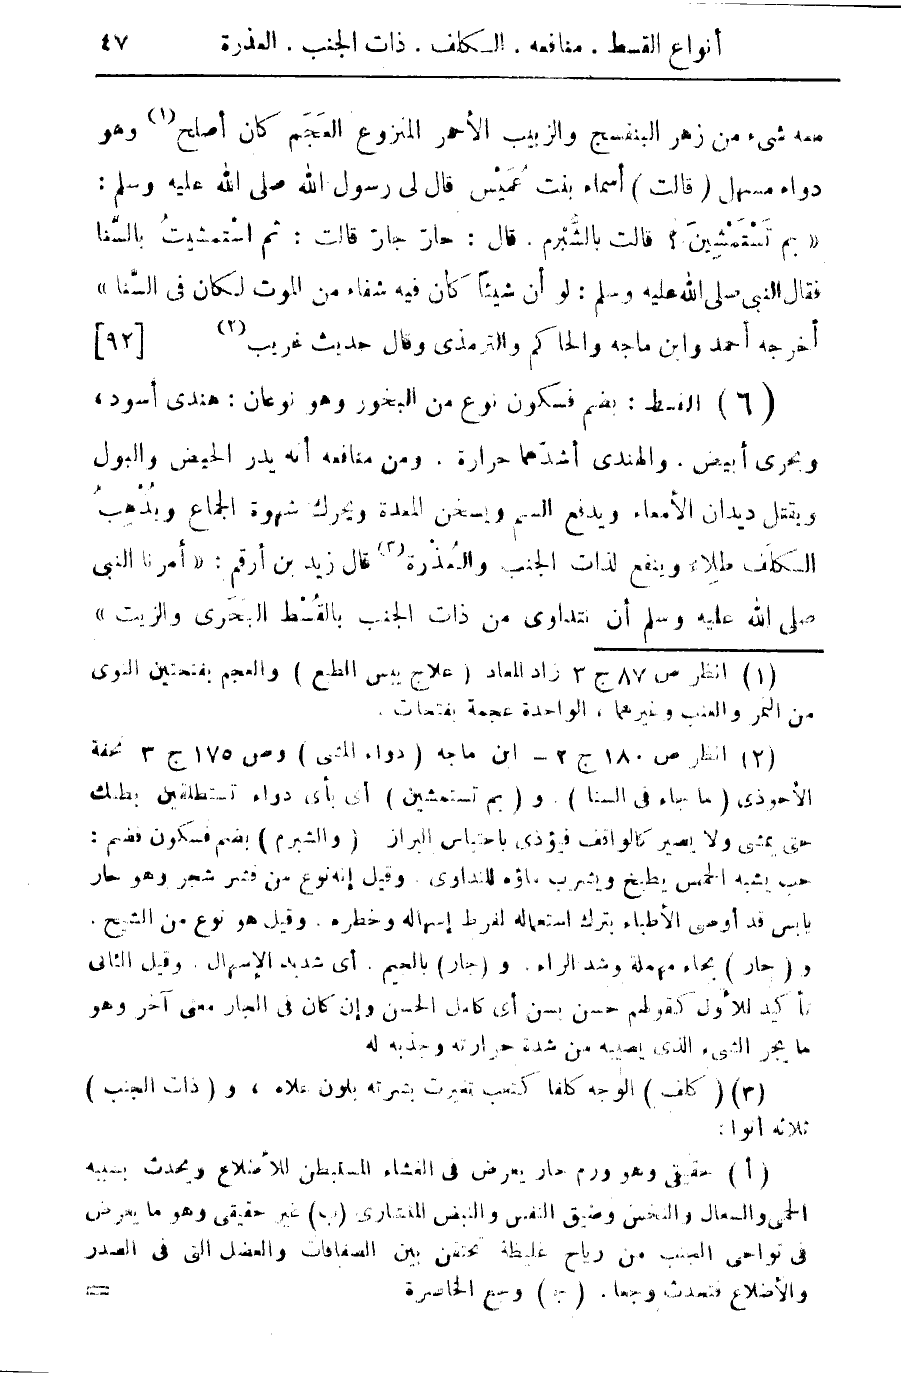 أنواع القسط . منافعه . الكلف . ذات الجنب . العذرة ٤٧
معه شىء من زهر البنفسج والزبيب الأحمر المنزوع العَجَم كان أصلح(١) وهو
دواء مسهل ( قالت ) أسماء بنت عُمَيْس قال لى رسول الله صلى الله عليه وسلم :
« بم تَسْتَمْشِينَ ؟ قالت بالشُّبْرم . قال : حارّ جارّ قالت : ثم استْمشيتُ بالسَّنا
فقال النبى صلى الله عليه وسلم : لو أن شيئاً كان فيه شفاء من الموت لكان فى السَّنا »
أخرجه أحمد وابن ماجه والحاكم والترمذى وقال حديث غريب(٢) [٩٢]
(٦) القسط : بضم فسكون نوع من البخور وهو نوعان : هندى أسود ،
وبحرى أبيض . والهندى أشدّهما حرارة . ومن منافعه أنه يدر الحيض والبول
ويقتل ديدان الأمعاء ويدفع السم ويسخن المعدة ويحرك شهوة الجماع ويُذْهِبُ
الكلَف طلاء وينفع لذات الجنب والعُذْرة(٣) قال زيد بن أرقم : « أمرنا النبى
صلى الله عليه وسلم أن نتداوى من ذات الجنب بالقُسْط البَحَرى والزيت »
(١) انظر ص ٨٧ ج ٣ زاد المعاد ( علاج يبس الطبع ) والعجم بفتحتين النوى
من التمر والعنب وغيرهما ، الواحدة عجمة بفتحات .
(٢) انظر ص ١٨٠ ج ٢ – ابن ماجه ( دواء المشى ) وص ١٧٥ ج ٣ تحفة
الأحوذى ( ما جاء فى السنا ) . و ( بم تستمشين ) أى بأى دواء تستطلقين بطنك
حتى يمشى ولا يصير كالواقف فيؤذى باحتباس البراز ( والشبرم ) بضم فسكون فضم :
حب يشبه الحمص يطبخ ويشرب ماؤه للتداوى . وقيل إنه نوع من قشر شجر وهو حار
يابس قد أوصى الأطباء بترك استعماله لفرط إسهاله وخطره . وقيل هو نوع من الشيح .
و ( حار ) بحاء مهملة وشد الراء . و (جار) بالجيم . أى شديد الإسهال . وقيل الثانى
تأكيد للأول كقولهم حسن بسن أى كامل الحسن وإن كان فى الجار معنى آخر وهو
ما يجر الشىء الذى يصيبه من شدة حرارته وجذبه له
(٣) ( كلف ) الوجه كلفا كتعب تغيرت بشرته بلون علاه ، و ( ذات الجنب )
ثلاثة أنوا :
( أ ) حقيقى وهو ورم حار يعرض فى الغشاء المستبطن للأضلاع ويحدث بسببه
الحمى والسعال والنخس وضيق النفس والنبض المنشارى (ب) غير حقيقى وهو ما يعرض
فى نواحى الجنب من رياح غليظة تحتقن بين الصفاقات والعضل التى فى الصدر
والأضلاع فتحدث وجعا . ( ج ) وجع الخاصرة =